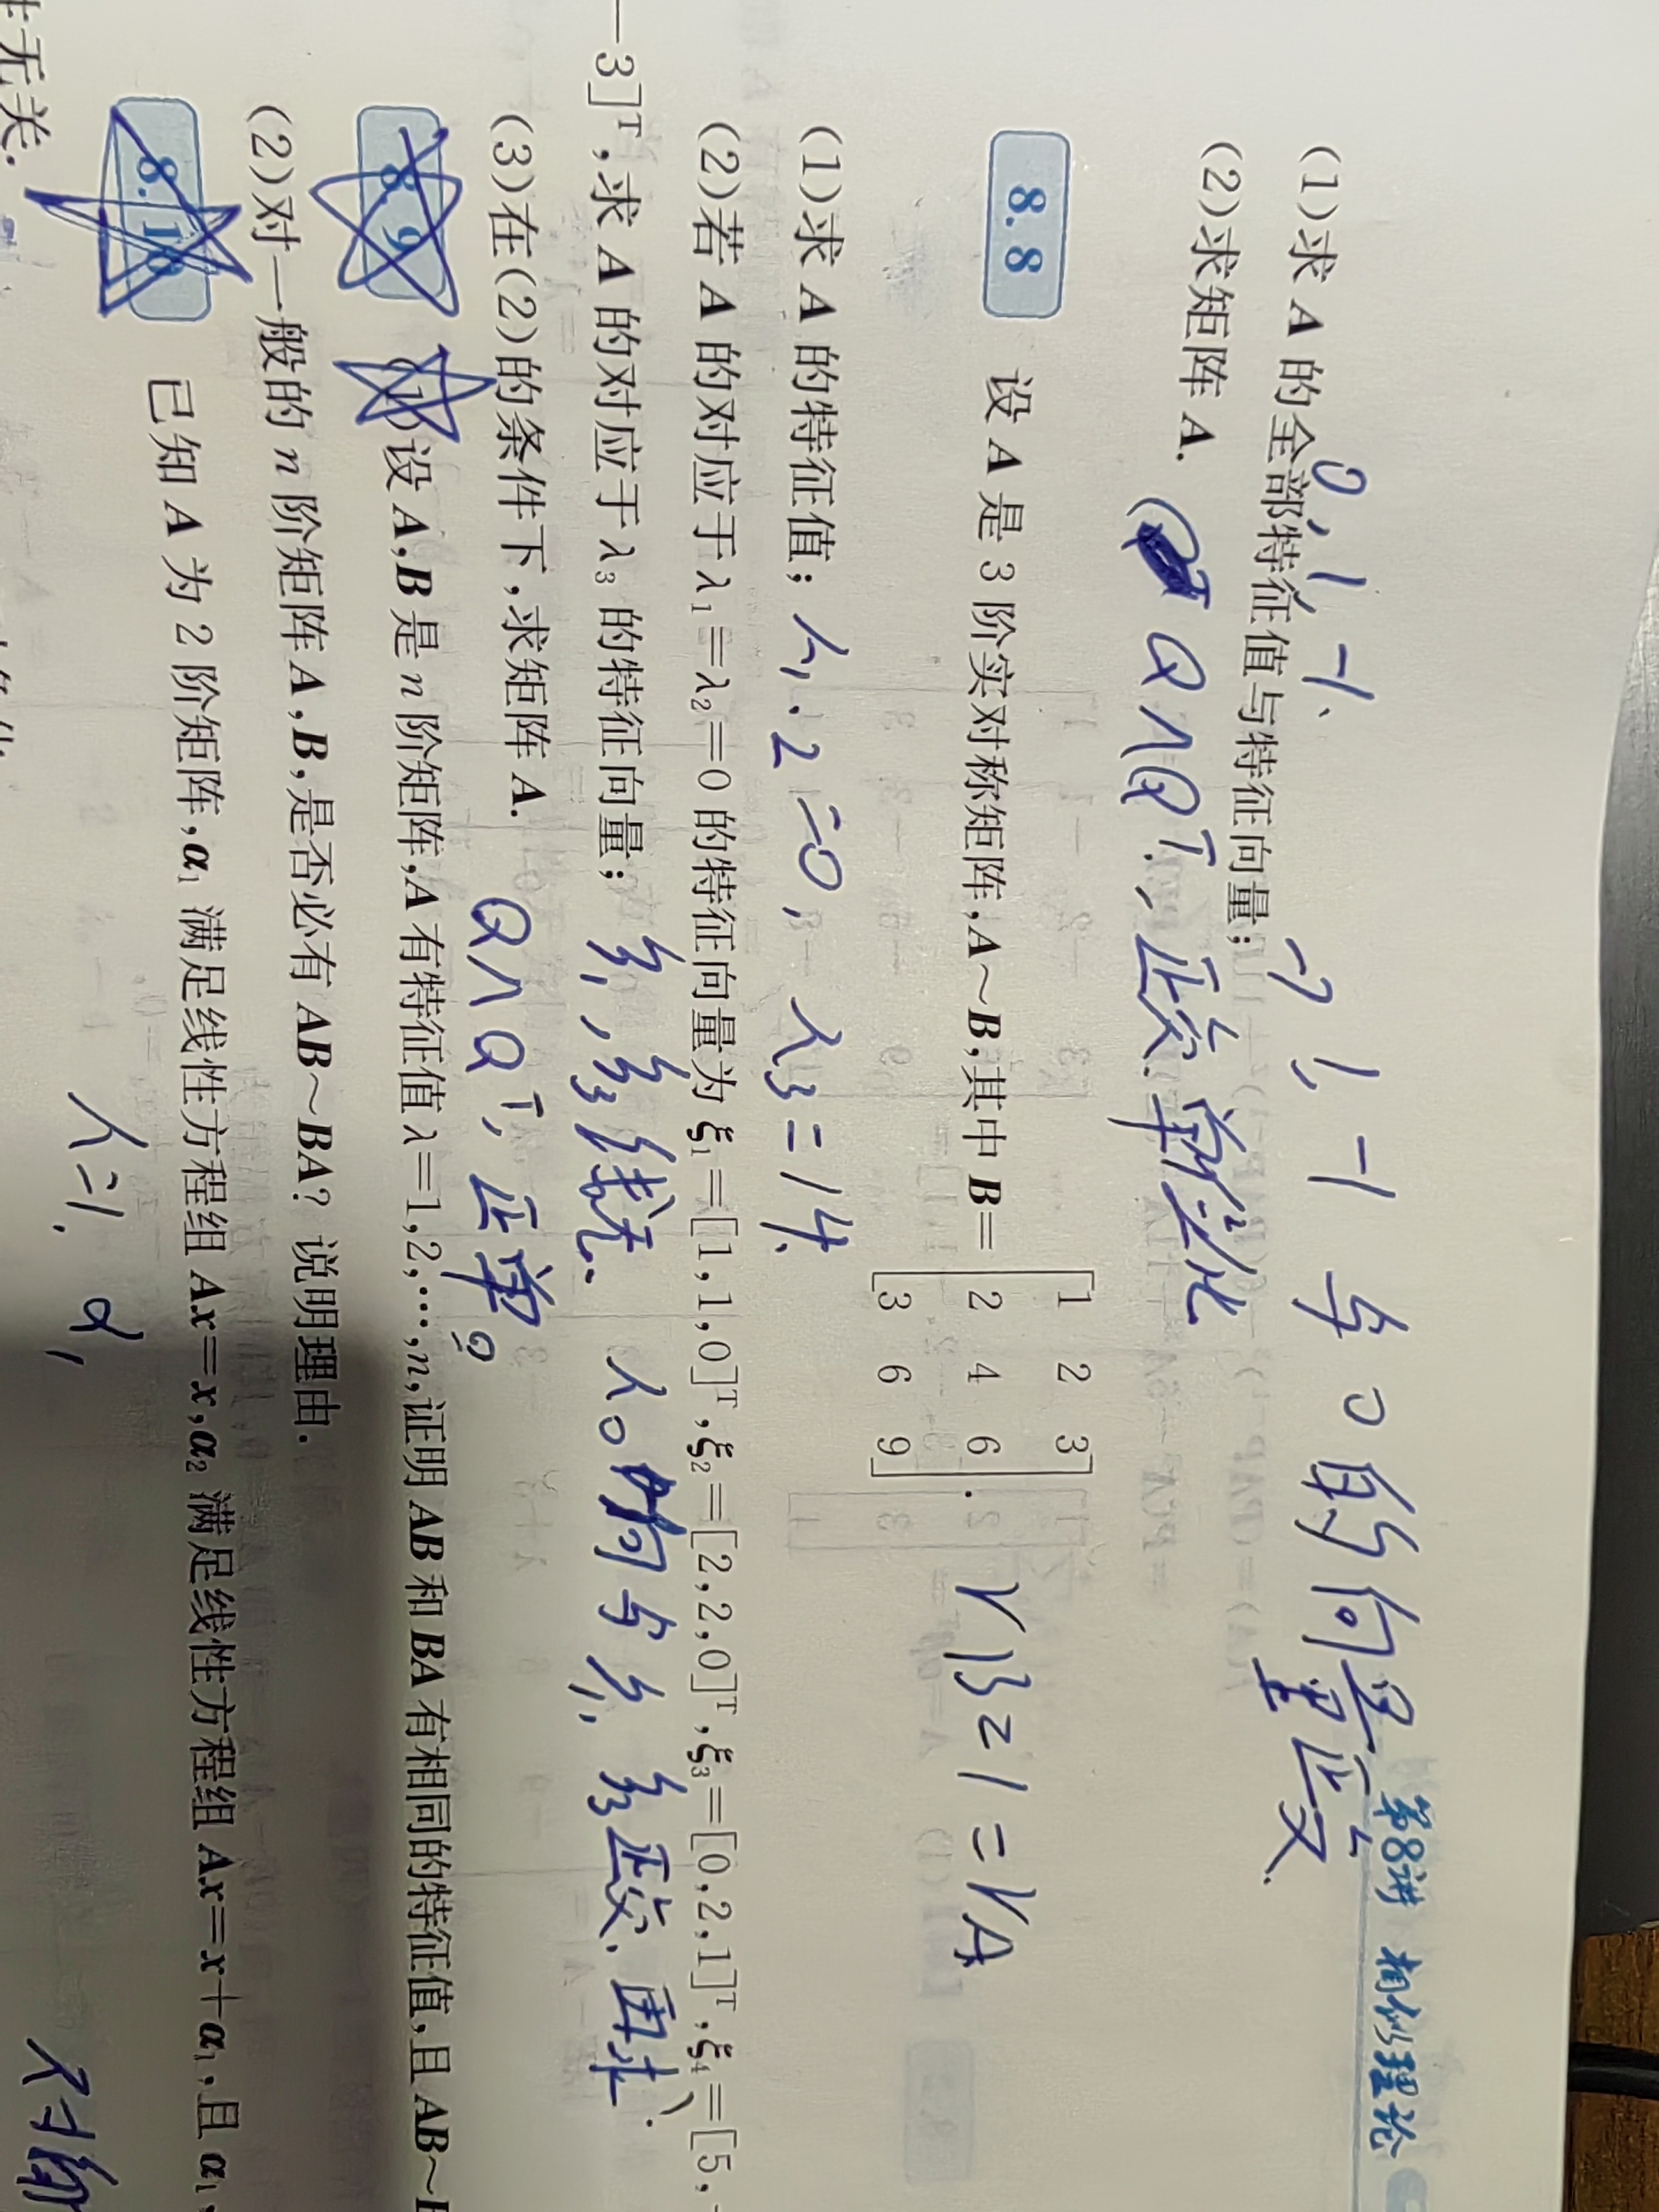 第8讲 相似理论
0, 1, -1、
-1 1, -1 与 0 的向量正交.
(1)求 A 的全部特征值与特征向量;
(2)求矩阵 A. QΛQᵀ, 正交. 单位化
8.8 设 A 是 3 阶实对称矩阵,A~B,其中 B=[1 2 3
2 4 6
3 6 9]. rB=1=rA
(1)求 A 的特征值; λ₁.₂=0, λ₃=14.
(2)若 A 的对应于 λ₁=λ₂=0 的特征向量为 ξ₁=[1,1,0]ᵀ,ξ₂=[2,2,0]ᵀ,ξ₃=[0,2,1]ᵀ,ξ₄=[5,
—3]ᵀ,求 A 的对应于 λ₃ 的特征向量; ξ₁,ξ₃线无. 与ξ₁, ξ₃正交. 再求
(3)在(2)的条件下,求矩阵 A. QΛQᵀ, 正单。
8.9 (1)设 A,B 是 n 阶矩阵,A 有特征值 λ=1,2,…,n,证明 AB 和 BA 有相同的特征值,且 AB~
(2)对一般的 n 阶矩阵 A,B,是否必有 AB~BA? 说明理由.
8.10 已知 A 为 2 阶矩阵,α₁ 满足线性方程组 Ax=x,α₂ 满足线性方程组 Ax=x+α₁,且 α₁,
λ=1. α₁
无关.